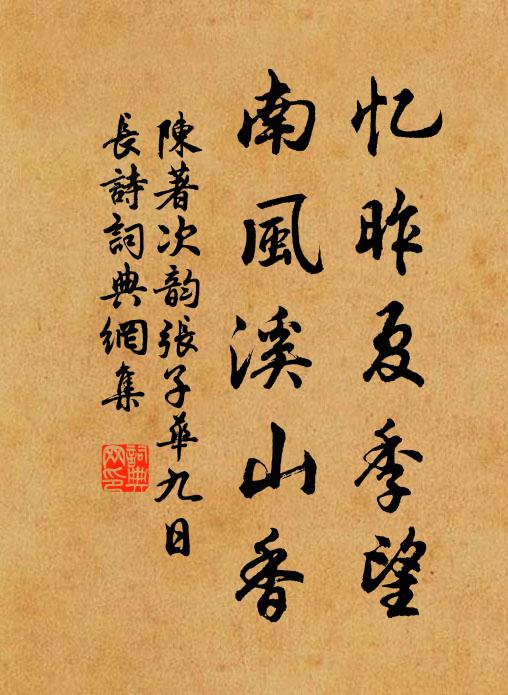 忆昨夏季望
南風溪山香
陳著次韵張子華九日
長詩詞典網集
詞典網印